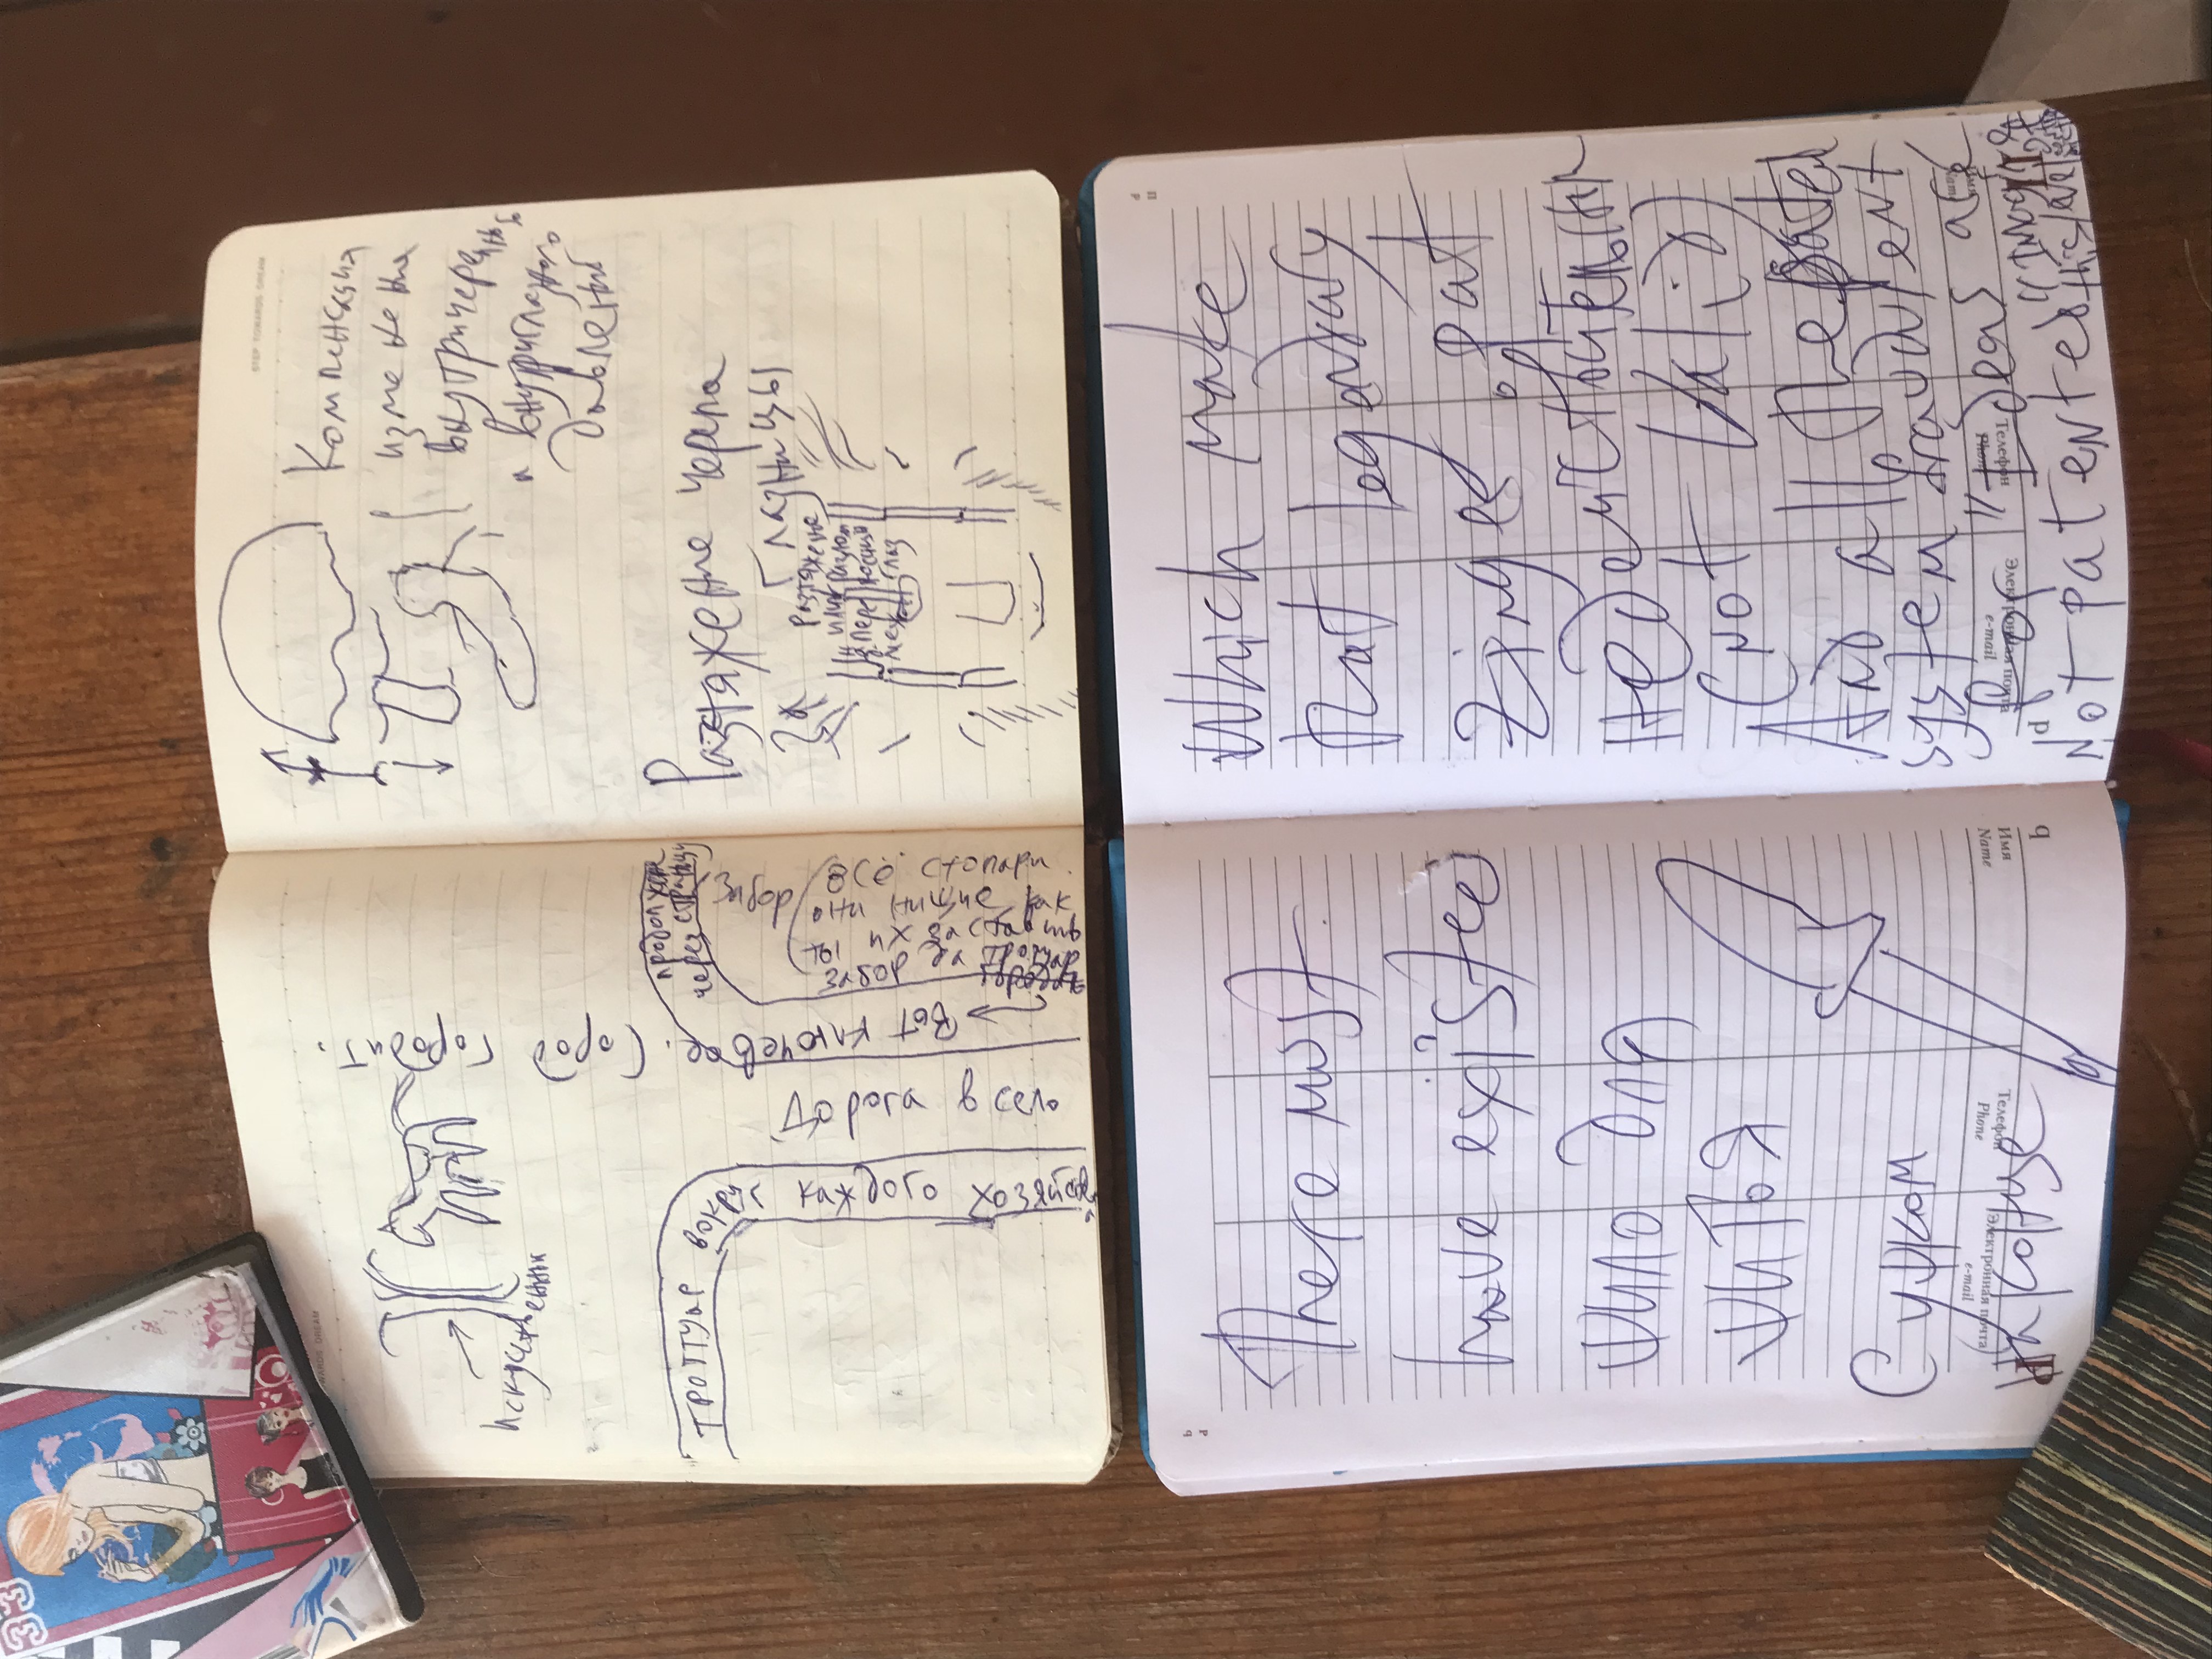 33
STEP TOWARDS DREAM
WARDS DREAM
Искуственный
тротуар вокруг каждого хозяйства
Дорога в село
Вот ключевое.
(оро)
продолжение
через страницу
Забор/всё столпари.
(они нищие как
ты их заставишь
забор за тротуар
городить
Компенсация
изменения
внутричерепного
и внутриглазного
давления
Разтяжение черепа
За глазницы
разтяжение
или разлом
пере носицы
меж глаз
There must
have existed
шило для
шитья
С ушком
на конце
Р
Имя
Name
Телефон
Phone
Электронная почта
e-mail
P
Which make
that legendary
Zinges pat
недействительным
(not Valid)
And all the patent
system fraudulent
for "Ideas are
Not patented"
"Imagine
this level
П
Р
Имя
Name
Телефон
Phone
Электронная почта
e-mail
P
П